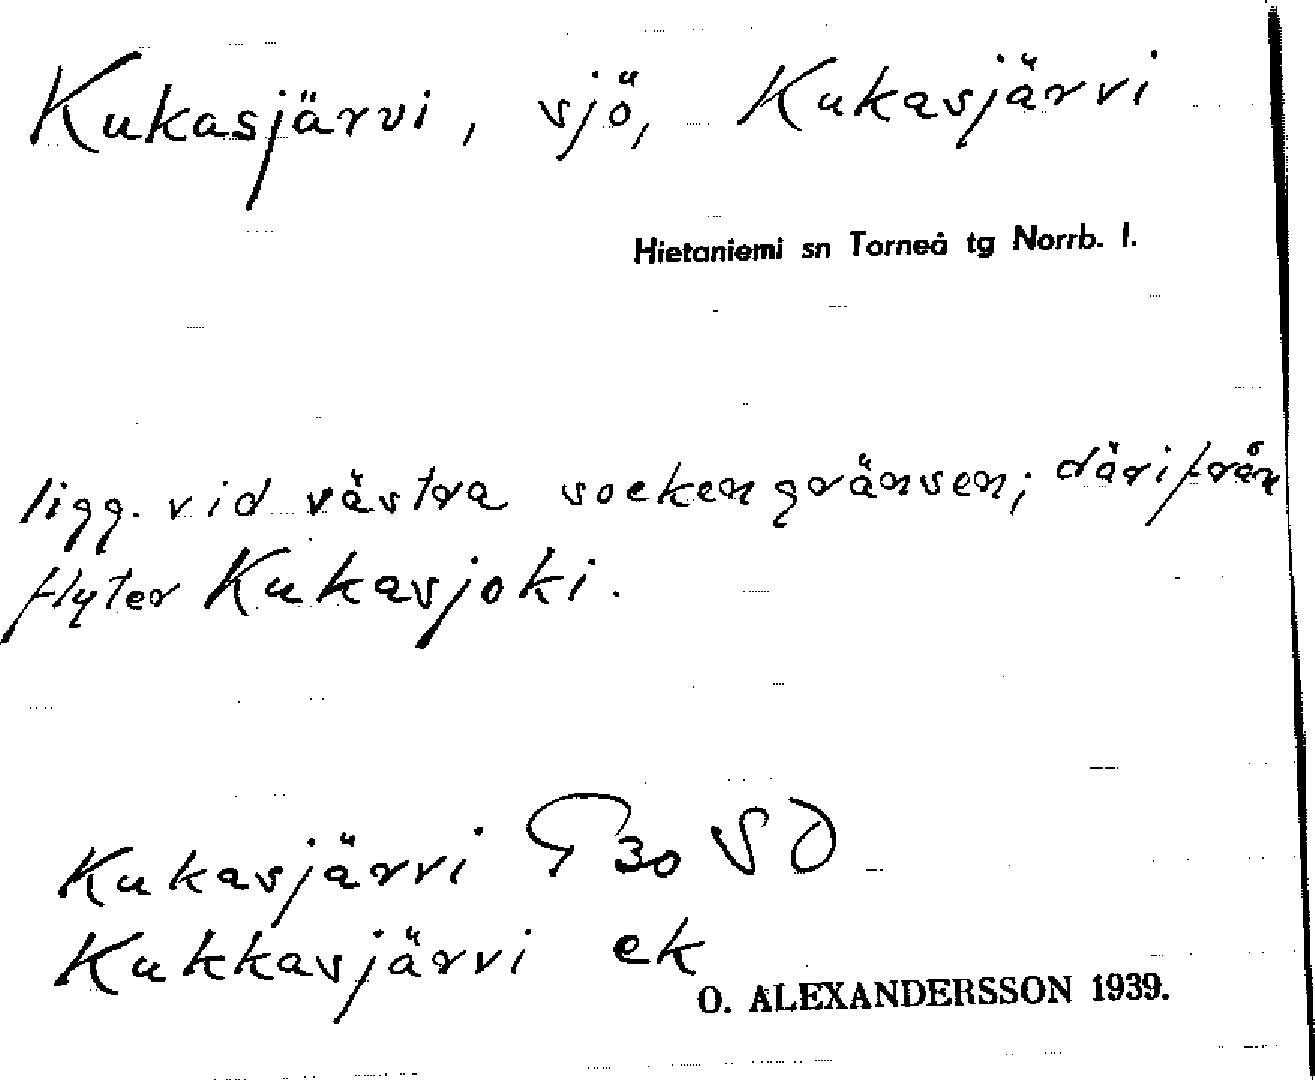 Kukasjärvi, sjö, Kukasjärvi
Hietaniemi sn Torneå tg Norrb. l.
ligg. vid västra sockengränsen; därifrån
flyter Kukasjoki.
Kukasjärvi 30 SO
Kukkasjärvi ek
O. ALEXANDERSSON 1939.